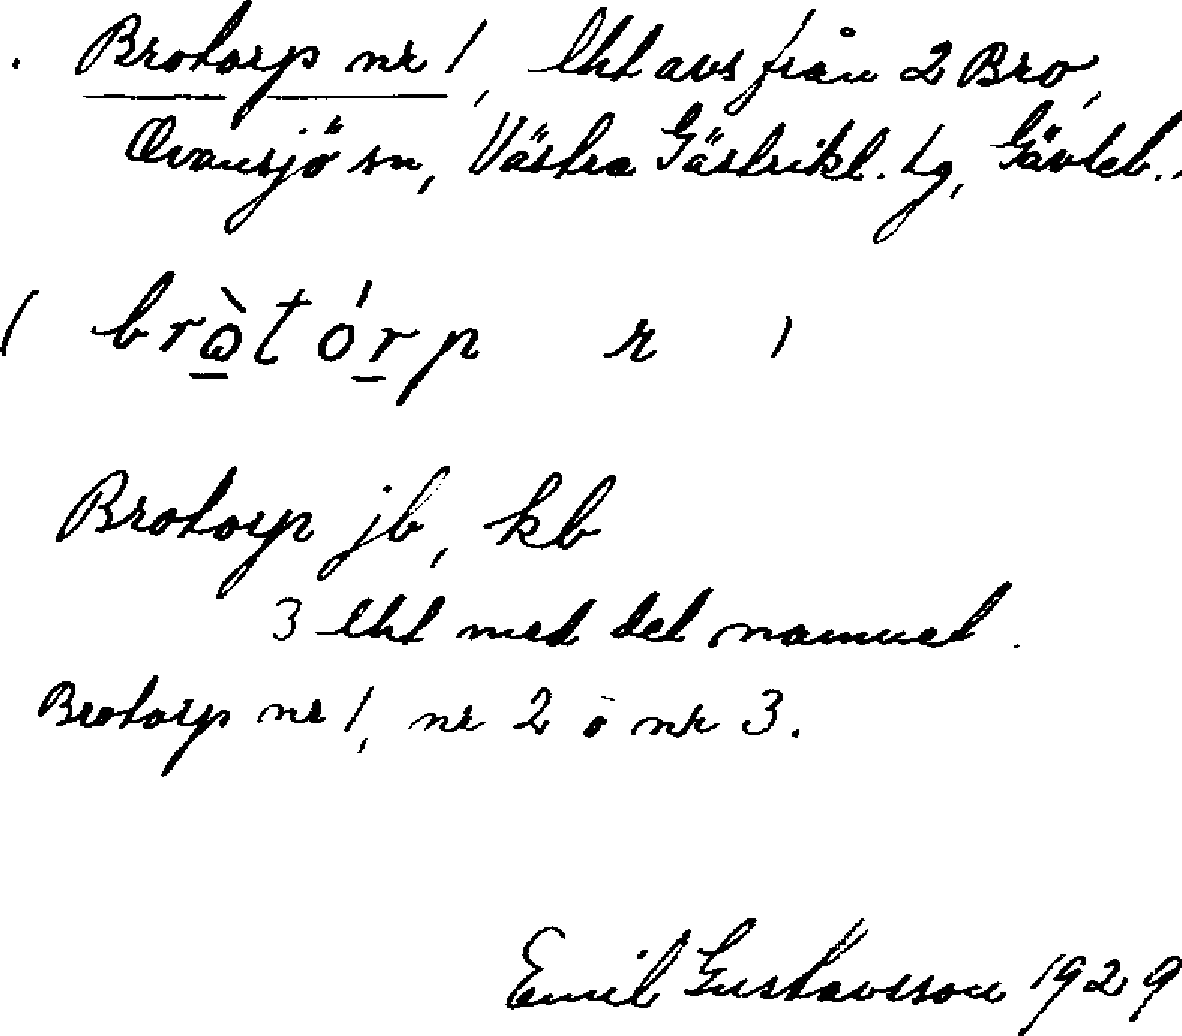 . Brotorp nr 1, lht avs från 2 Bro,
Ovansjö sn, Västra Gästrikl. tg, Gävleb..
( brὼ̱tóṟp r )
Brotorp jb, kb
3 lht med det namnet.
Brotorp nr 1, nr 2 o nr 3.
Emil Gustavsson 1929